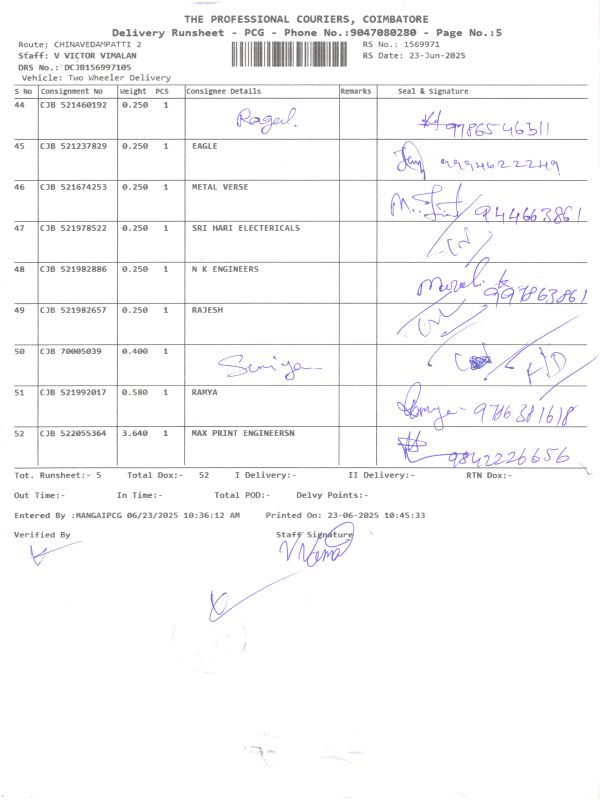 THE PROFESSIONAL COURIERS, COIMBATORE
Delivery Runsheet - PCG - Phone No.:9047080280 - Page No.:5
Route; CHINAVEDAMPATTI 2 RS No.: 1569971
Staff: V VICTOR VIMALAN RS Date: 23-Jun-2025
DRS No.: DCJB156997105
Vehicle: Two Wheeler Delivery
S No Consignment No Weight PCS Consignee Details Remarks Seal & Signature
44 CJB 521460192 0.250 1 Ragul. 9786546311
45 CJB 521237829 0.250 1 EAGLE 9994622249
46 CJB 521674253 0.250 1 METAL VERSE 9444663861
47 CJB 521978522 0.250 1 SRI HARI ELECTERICALS
48 CJB 521982886 0.250 1 N K ENGINEERS Murali. k 997863861
49 CJB 521982657 0.250 1 RAJESH
50 CJB 70005039 0.400 1 Suriya
51 CJB 521992017 0.580 1 RAMYA Ramya - 9786381618
52 CJB 522055364 3.640 1 MAX PRINT ENGINEERSN 9842226656
Tot. Runsheet:- 5 Total Dox:- 52 I Delivery:- II Delivery:- RTN Dox:-
Out Time:- In Time:- Total POD:- Delvy Points:-
Entered By :MANGAIPCG 06/23/2025 10:36:12 AM Printed On: 23-06-2025 10:45:33
Verified By Staff Signature